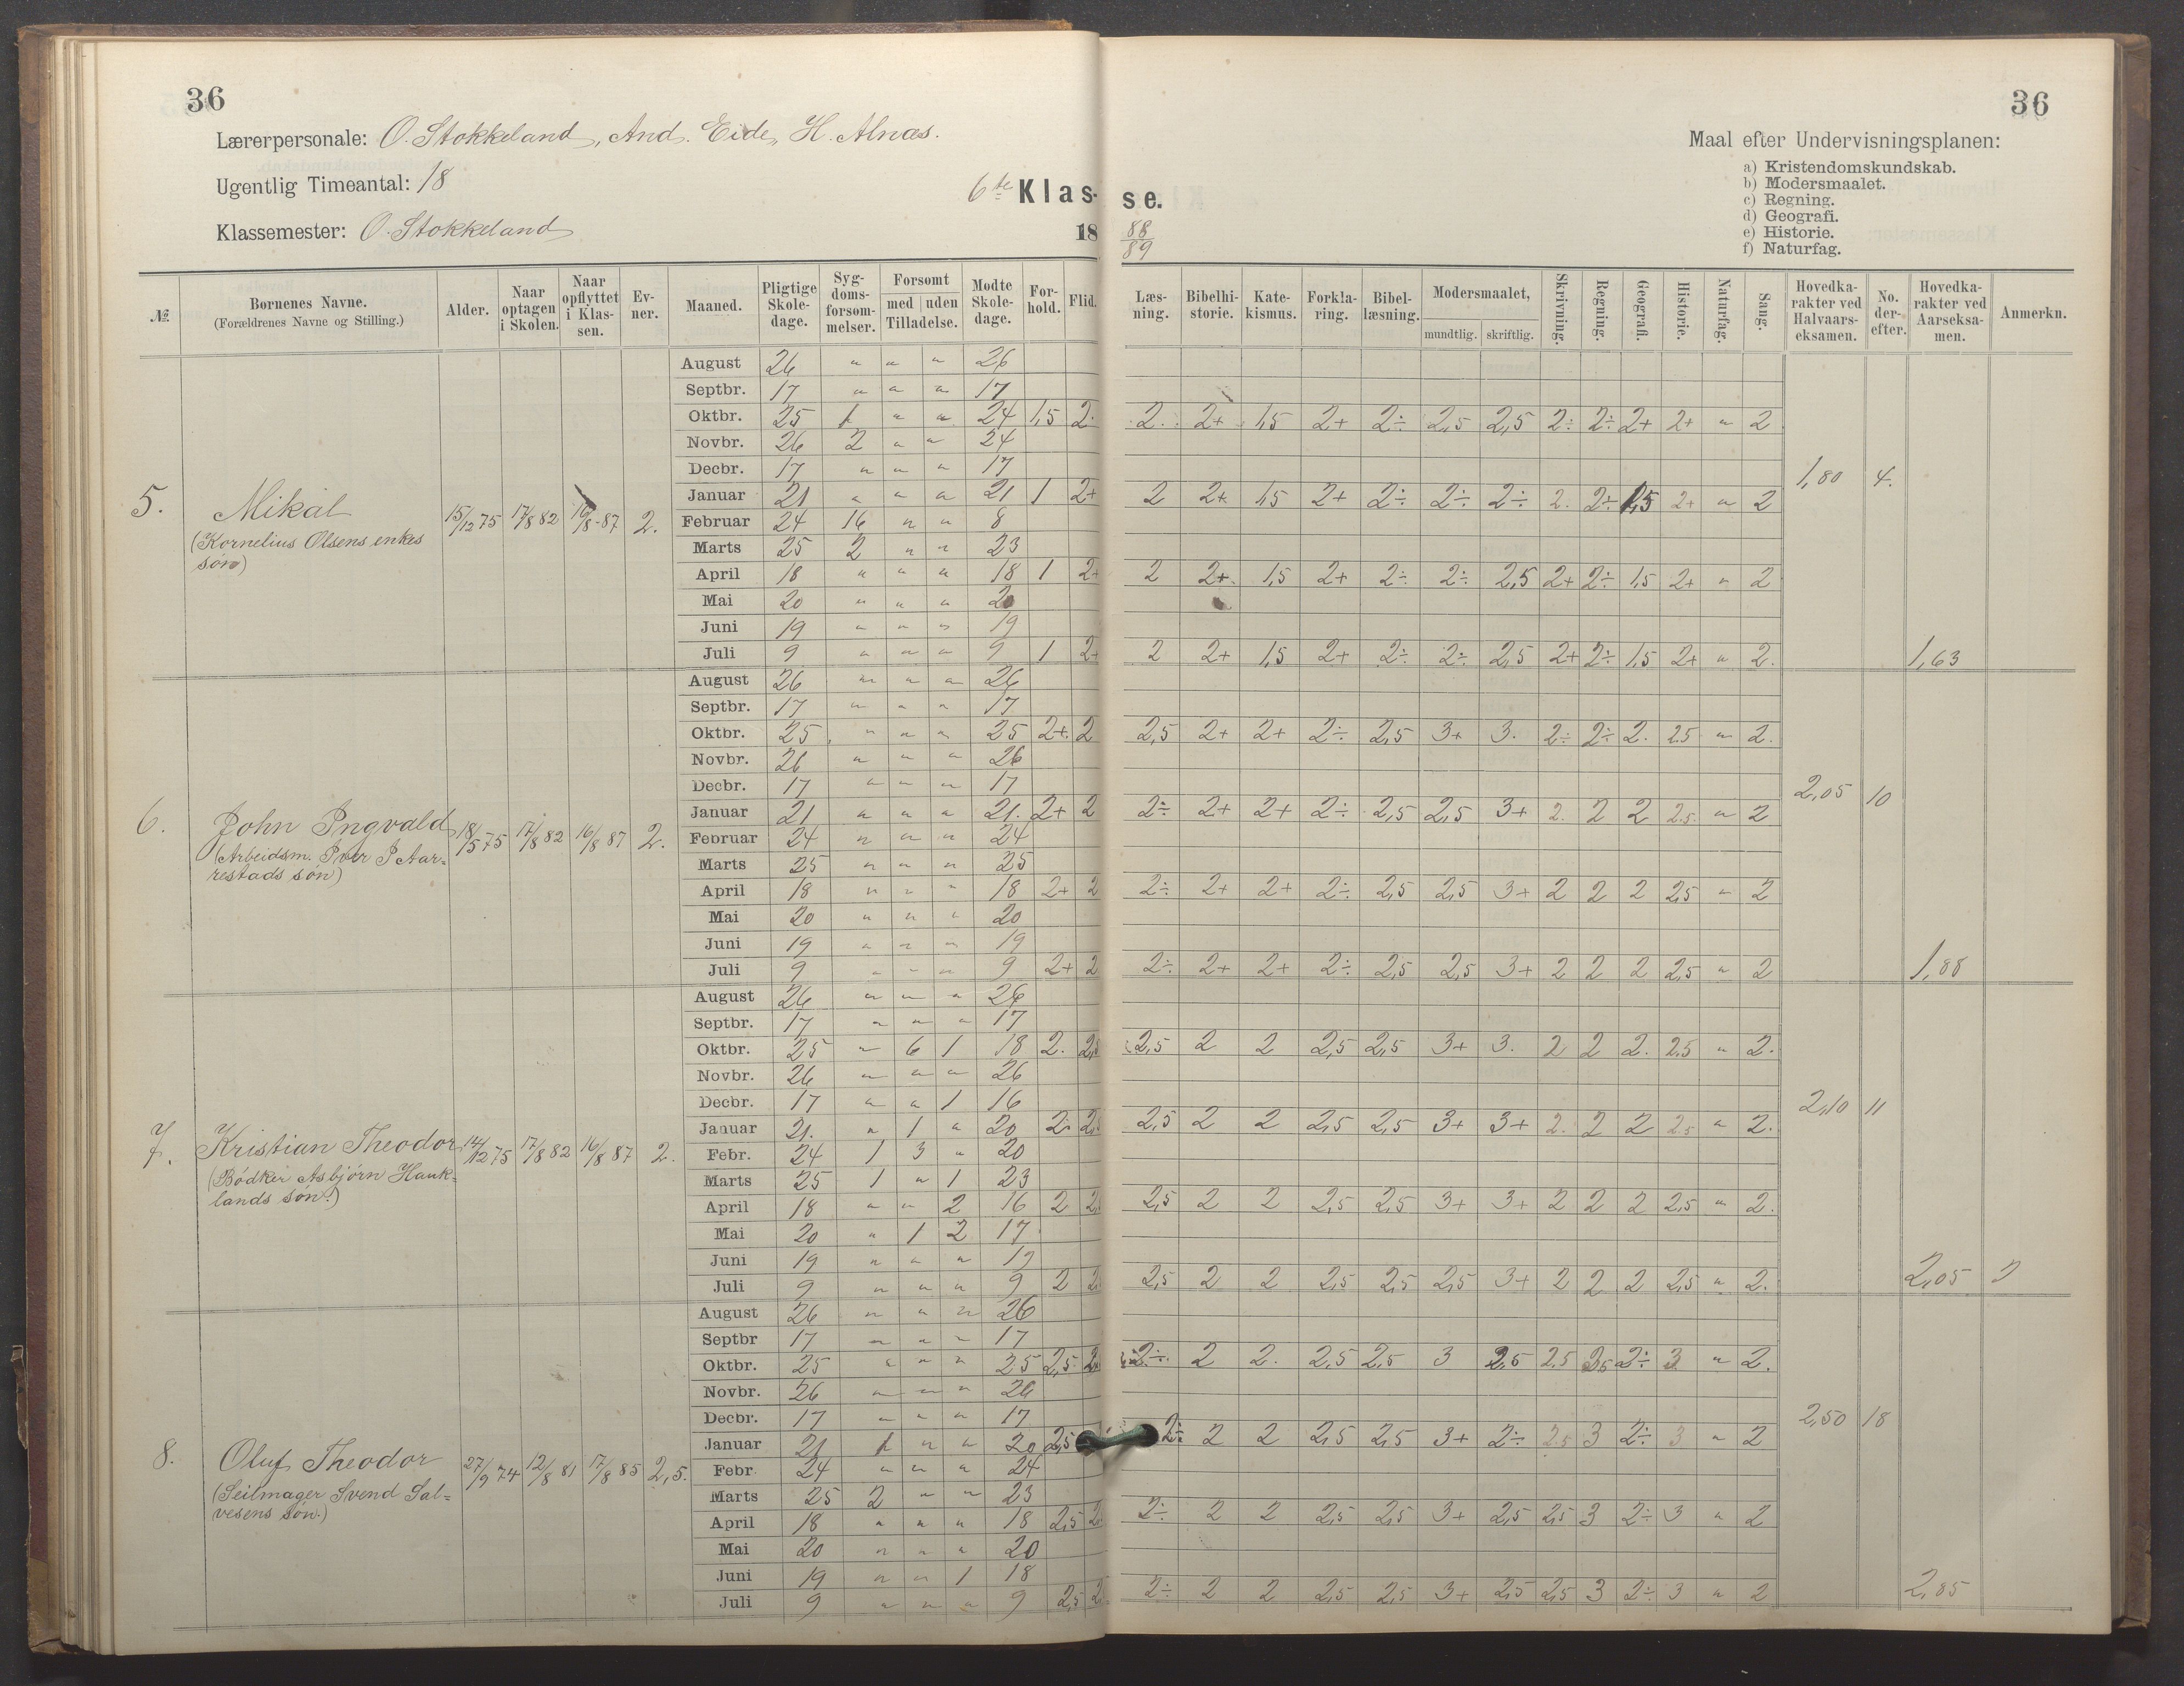 36
Lærerpersonale: O. Stokkeland, And. Eide, H. Alnæs.
Ugentlig Timeantal: 18
6te Klas-
Klassemester: O. Stokkeland
18
№
Børnenes Navne.
(Forældrenes Navne og Stilling.)
Alder.
Naar optagen i Skolen.
Naar opflyttet i Klassen.
Ev-ner.
Maaned.
Pligtige Skole-dage.
Syg-doms-forsøm-melser.
Forsømt
med | uden
Tilladelse.
Mødte Skole-dage.
For-hold.
Flid.
5. Mikal
(Kornelius Olsens enkes
søn)
15/12 75 17/8 82 16/8-87 2.
August 26 " " " 26
Septbr. 17 " " " 17
Oktbr. 25 1 " " 24 1,5 2
Novbr. 26 2 " " 24
Decbr. 17 " " " 17
Januar 21 " " " 21 1 2+
Februar 24 16 " " 8
Marts 25 2 " " 23
April 18 " " " 18 1 2+
Mai 20 " " " 20
Juni 19 " " " 19
Juli 9 " " " 9 1 2+
6. John Ingvald
(Arbeidsm. Iver I Aar=
restads søn)
18/5 75 17/8 82 16/8 87 2.
August 26 " " " 26
Septbr. 17 " " " 17
Oktbr. 25 " " " 25 2+ 2
Novbr. 26 " " " 26
Decbr. 17 " " " 17
Januar 21 " " " 21. 2+ 2
Februar 24 " " " 24
Marts 25 " " " 25
April 18 " " " 18 2+ 2
Mai 20 " " " 20
Juni 19 " " " 19
Juli 9 " " " 9 2+ 2
7. Kristian Theodor
(Bødker Asbjørn Hauk=
lands søn.)
14/12 75 17/8 82 16/8 87 2.
August 26 " " " 26
Septbr. 17 " " " 17
Oktbr. 25 " 6 1 18 2. 2,5
Novbr. 26 " " " 26
Decbr. 17 " " 1 16
Januar 21. " 1 " 20 2. 2,5
Febr. 24 1 3 " 20
Marts 25 1 " 1 23
April 18 " " 2 16 2 2,
Mai 20 " 1 2 17
Juni 19 " " " 19
Juli 9 " " " 9 2 2
8. Oluf Theodor
(Seilmager Svend Sal=
vesens søn.)
27/9 74 12/8 81 17/8 85 2,5.
August 26 " " " 26
Septbr 17 " " " 17
Oktbr. 25 " " " 25 2,5 2
Novbr. 26 " " " 26
Decbr. 17 " " " 17
Januar 21 1 " " 20 2,5
Febr 24 " " " 24
Marts 25 2 " " 23
April 18 " " " 18 2,5 2
Mai 20 " " " 20
Juni 19 " " 1 18
Juli 9 " " " 9 2,5 2
36
Maal efter Undervisningsplanen:
a) Kristendomskundskab.
b) Modersmaalet.
c) Regning.
d) Geografi.
e) Historie.
f) Naturfag.
se.
88
89
Læs-ning.
Bibelhi-storie.
Kate-kismus.
Forkla-ring.
Bibel-læsning.
Modersmaalet,
mundtlig. | skriftlig.
Skrivning.
Regning.
Geografi.
Historie.
Naturfag.
Sang.
Hovedka-rakter ved Halvaars-eksamen.
No. der-efter.
Hovedka-rakter ved Aarseksa-men.
Anmerkn.
2. 2+ 1,5 2+ 2÷ 2,5 2,5 2÷ 2÷ 2+ 2+ " 2
1,80 4.
2 2+ 1,5 2+ 2÷ 2÷ 2÷ 2. 2÷ 1,5 2+ " 2
2 2+ 1,5 2+ 2÷ 2÷ 2,5 2+ 2÷ 1,5 2+ " 2
2 2+ 1,5 2+ 2÷ 2÷ 2,5 2+ 2÷ 1,5 2+ " 2.
1,63
2,5 2+ 2+ 2÷ 2,5 3+ 3. 2÷ 2÷ 2. 2.5 " 2.
2,05 10
2÷ 2+ 2+ 2÷ 2,5 2,5 3+ 2. 2 2 2.5 " 2
2÷ 2+ 2+ 2÷ 2,5 2,5 3+ 2 2 2 2,5 " 2
2÷ 2+ 2+ 2÷ 2,5 2,5 3+ 2 2 2 2,5 " 2
1,88
2,5 2 2 2,5 2,5 3+ 3. 2 2 2. 2.5 " 2.
2,10 11
2,5 2 2 2,5 2,5 3+ 3+ 2. 2 2 2.5 " 2.
2,5 2 2 2,5 2,5 3+ 3+ 2 2 2 2,5 " 2.
2,5 2 2 2,5 2,5 2,5 3+ 2 2 2 2,5 " 2.
2,05
2÷. 2 2. 2,5 2,5 3 2,5 2.5 2,5 2÷ 3 " 2.
2,50 18
2÷ 2 2 2,5 2,5 3+ 2÷ 2.5 3 2÷ 3 " 2
2÷ 2 2 2,5 2,5 3+ 2,5 2,5 3 2÷ 3 " 2
2÷ 2 2 2,5 2,5 3+ 2,5 2,5 3 2÷ 3 " 2
2,85